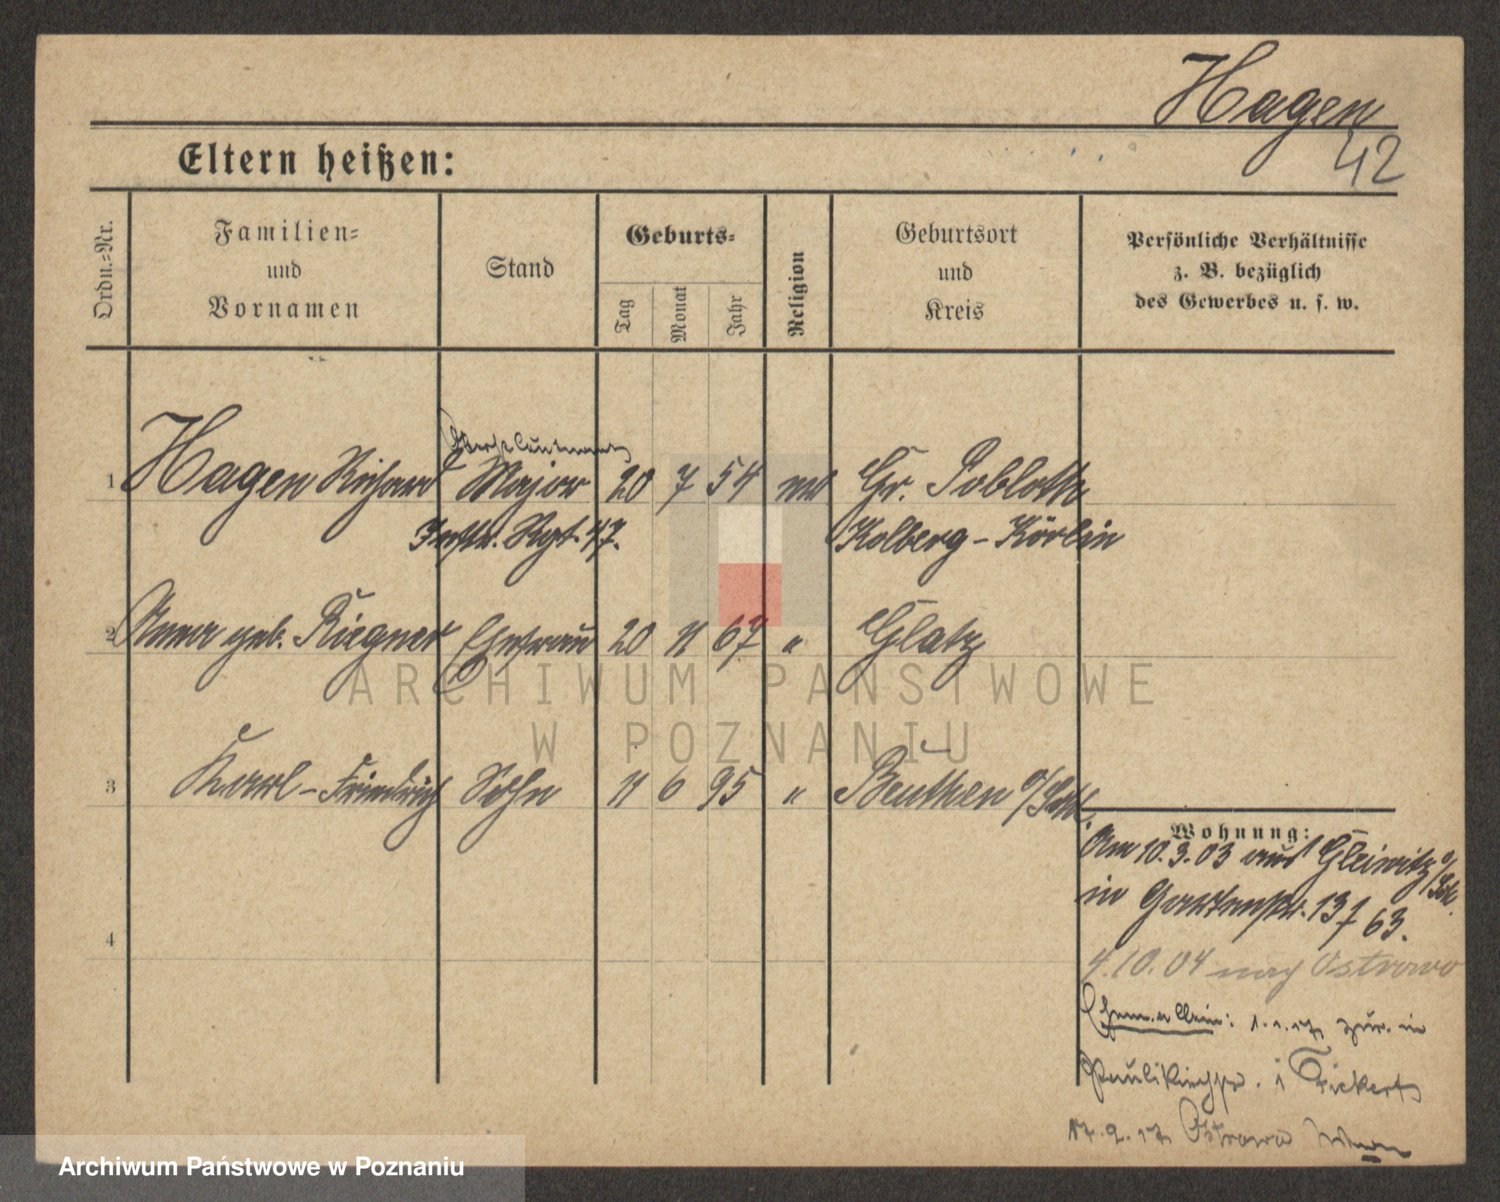 Hagen
42
Eltern heißen:
Ordn.-Nr.
Familien-
und
Vornamen
Stand
Geburts-
Tag
Monat
Jahr
Religion
Geburtsort
und
Kreis
Persönliche Verhältnisse
z. B. bezüglich
des Gewerbes u. s. w.
Oberstleutnant
1 Hagen Richard Major 20 7 54 Gr. Poblloth
Inftr. Rgt. 47. Kolberg - Körlin
2 Anna geb. Riegner Ehefrau 20 11 67 " Glatz
3 Karl-Friedrich Sohn 11 6 95 " Beuthen o/Schl.
4
Wohnung:
Am 10.3.03 aus Gleiwitz o/Schl.
in Gartenstr. 13 f 63.
4.10.04 nach Ostrowo
1.1.17 zur. in
Paulikirchstr. i Fickert
17.2.17 Ostrowo
ARCHIWUM PAŃSTWOWE
W POZNANIU
Archiwum Państwowe w Poznaniu